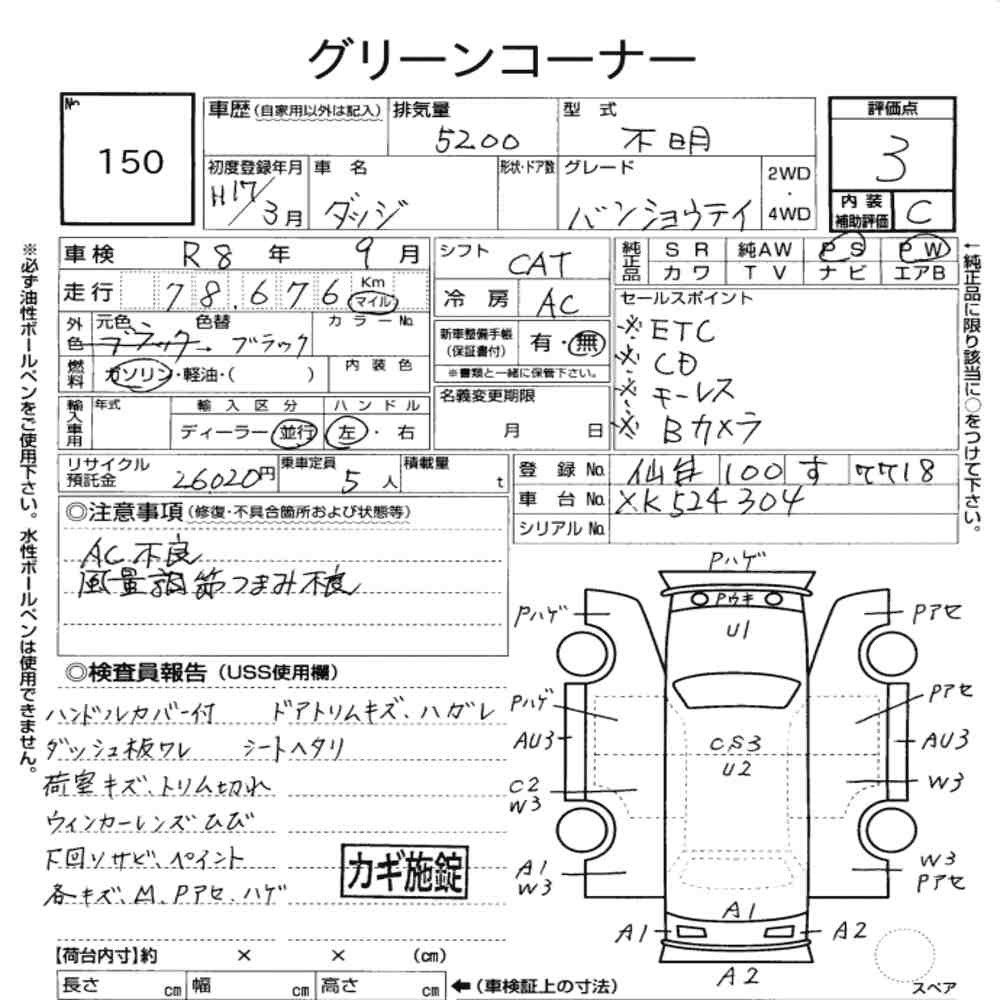 グリーンコーナー
№ 150
車歴(自家用以外は記入) 排気量 5200 型式 不明 評価点 3
初度登録年月 H17/3月 車名 ダッジ 形状・ドア数 グレード バンショウティ 2WD・4WD 内装補助評価 C
※必ず油性ボールペンをご使用下さい。水性ボールペンは使用できません。
車検 R8年 9月 シフト CAT 純正品 SR 純AW PS PW カワ TV ナビ エアB
走行 78,676 Km マイル 冷房 AC セールスポイント
外色 元色 ブラック→ 色替 ブラック カラーNo. 新車整備手帳(保証書付) 有・無 ※書類と一緒に保管下さい。
※ETC
※CD
※キーレス
※Bカメラ
燃料 ガソリン・軽油・( ) 内装色 名義変更期限 月 日
輸入車用 年式 輸入区分 ディーラー 並行 ハンドル 左・右
←純正品に限り該当に○をつけて下さい。
リサイクル預託金 26,020円 乗車定員 5人 積載量 t 登録No. 仙台 100 す 7718
車台No. XK524304
シリアルNo.
◎注意事項(修復・不具合箇所および状態等)
AC不良
風量調節つまみ不良
◎検査員報告(USS使用欄)
ハンドルカバー付 ドアトリムキズ、ハガレ
ダッシュ板ワレ シートヘタリ
荷室キズ、トリム切れ
ウィンカーレンズひび
下回りサビ、ペイント
各キズ、凹、Pアセ、ハゲ
カギ施錠
Pハゲ
Pウキ
U1
Pハゲ Pアセ
Pハゲ Pアセ
AU3 CS3 AU3
U2
C2 W3 W3
A1 W3 W3 Pアセ
A1
A1 A2
A2
スペア
【荷台内寸】約 × × (cm)
長さ cm 幅 cm 高さ cm ←(車検証上の寸法)